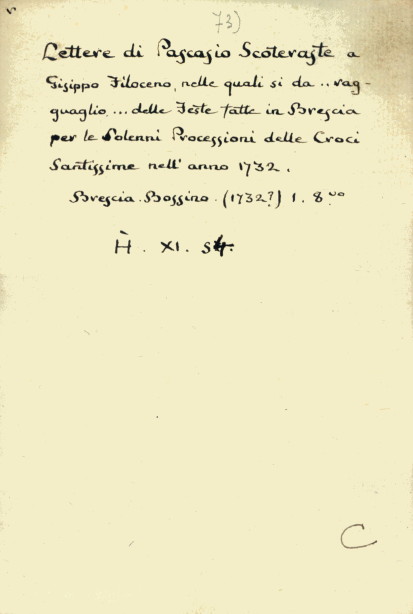 73)
Lettere di Pascasio Scoteraste a
Gisippo Filoceno, nelle quali si da .. rag-
guaglio ... delle Feste fatte in Brescia
per le Solenni Processioni delle Croci
Santissime nell' anno 1732.
Brescia. Bossino. (1732?) 1. 8.vo
H. XI. S4.
C